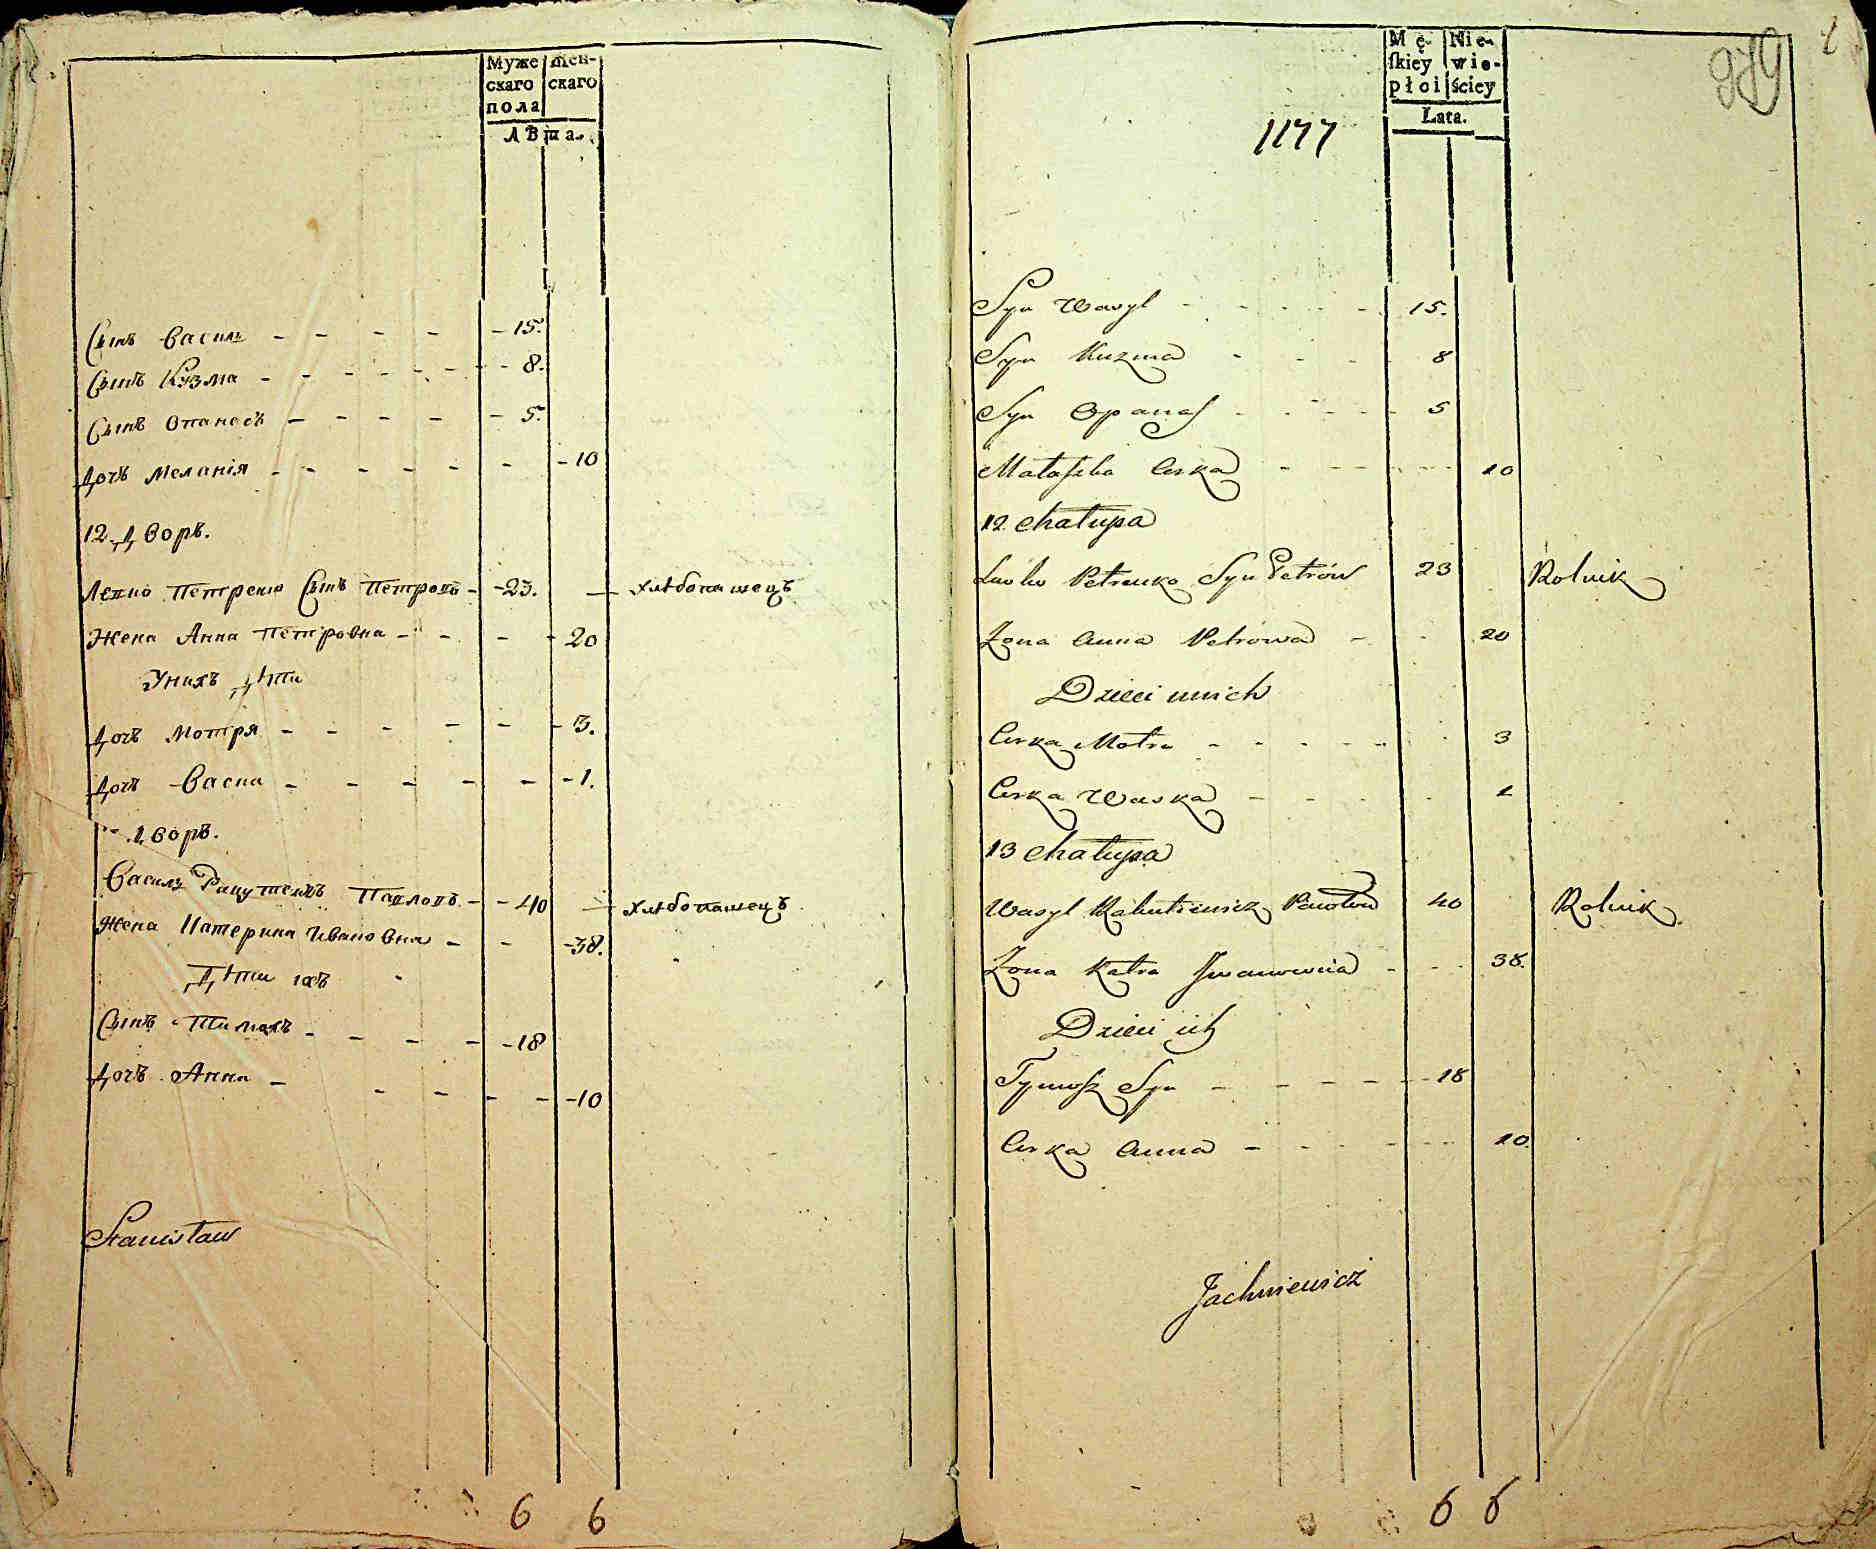 Муже Жен-
скаго скаго
пола
Лѣта.
Сынъ Василь - - - - 15.
Сынъ Кузма - - - - 8.
Сынъ Опанасъ - - - - 5.
Дочь Меланія - - - - 10
12. Дворъ.
Петренко Сынъ Петровъ - 23. хлѣбопашецъ
Жена Анна Петровна - - - 20
У нихъ дѣти
Дочь Мотря - - - - 3.
Дочь Васка - - - - 1.
Дворъ.
Василь Павловъ - 40 хлѣбопашецъ
Жена Катерина Ивановна - - 38.
Дѣти ихъ
Сынъ - - - - 18
Дочь Анна - - - - 10
Stanisław
6 6
Mę- Nie-
skiey wie-
płci ściey
Lata.
1177
979
Syn Wasyl - - - - 15.
Syn Kuzma - - - 8
Syn Opanas - - - - 5
Małaszka Curka - - - - 10
12 Chałupa
Petrenko Syn Petrów 23 Rolnik
Żona Anna Petrowa - - 20
Dzieci u nich
Curka Motra - - - - 3
Curka Waska - - - - 1
13 Chałupa
Wasyl Pawłow 40 Rolnik
Żona Katra Iwanowna - - 38.
Dzieci ich
Tymosz Syn - - - - 18
Curka Anna - - - - 10.
Jachniewicz
6 6